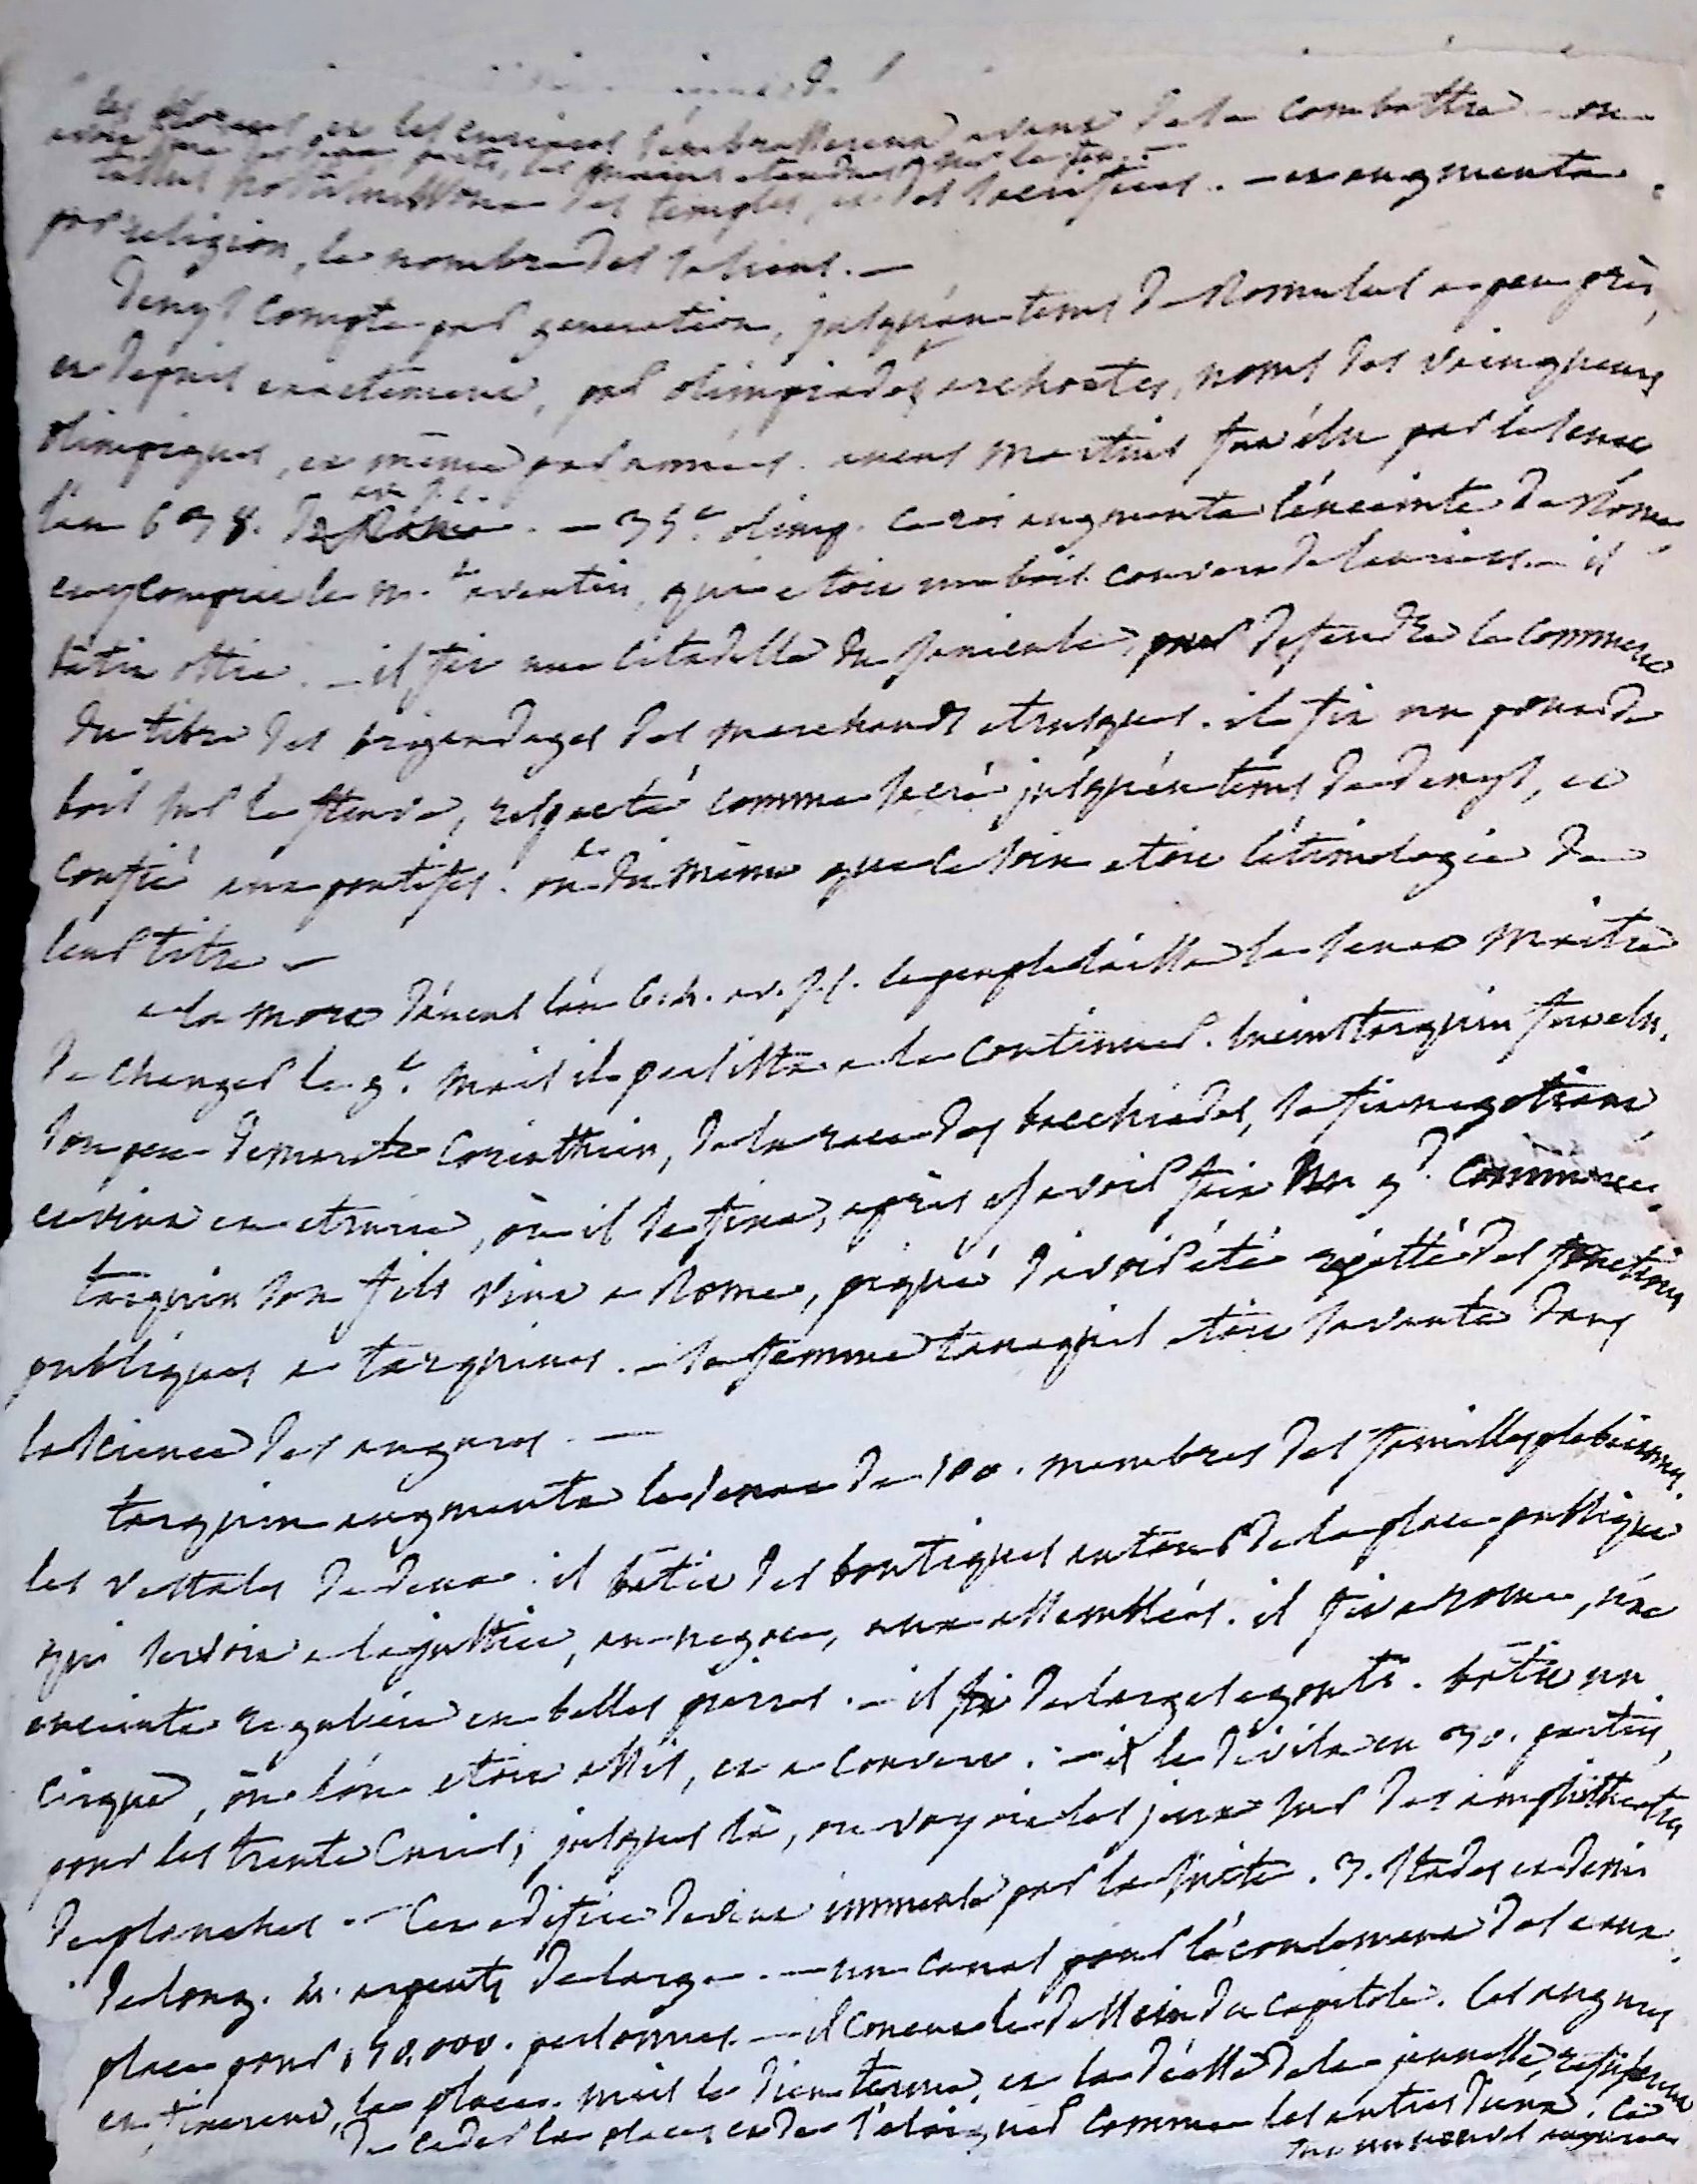 les horaces, et les curiaces s'embrasserent avant de se combattre on
avoir les deux partis, les mains etendues sur le feu. -
tullus hostilius des temples, et des sacrifices. - et augmenta
par religion, le nombre des saliens. -
denys compte par generation, jusqu'au tems de Romulus a peu près,
et depuis exactement, par olimpiades archontes, noms des vainqueurs
olimpiques, et même par années. ancus martius fut élu par le senat
l'an 638. av. j. c. - 35e olimp. ce roi augmenta l'enceinte de Rome
en y comprit le m.t aventin, qui etoit un bois couvert de lauriers. - il
bâtit ostie. - il fit une citadelle du janicule, pour defendre le commerce
du tibre des brigandages des marchands etrusques. il fit un pont de
bois sur le fleuve, respecté comme sacré jusqu'au tems de denys, et
confié aux pontifes. on dit même que ce soin etoit l'étimologie de
leur titre -
a la mort d'ancus l'an 614. av. j. c. le peuple laissa le senat maitre
de changer le g.t mais il persista a le continuer. lucius tarquin fut elu.
son pere demarate corinthien, de la race des bacchiades, se fit negotiant
et vint en etrurie, où il se fixa, après y avoir fait un g.d commerce.
tarquin son fils vint a Rome, piqué d'avoir été rejetté des fonctions
publiques a tarquines. - sa femme tanaquil etoit savante dans
la science des augures. -
tarquin augmenta le senat de 100. membres des familles plebeiennes.
les vestales de deux. il bâtit des boutiques autour de la place publique
qui servoit a la justice, au negoce, aux assemblées. il fit a rome, une
enceinte reguliere en belles pierres. - il fit de larges egouts. bâtit un
cirque, où l'on etoit assis, et a couvert. - il le divisa en 30. parties,
pour les trente curies, jusques là, on voyoit les jeux sur des amphitheatres
de planches. - cet edifice devint immense par la suite. 3. stades et demi
de long. 4. arpents de large. - un canal pour l'ecoulement des eaux.
place pour 150,000. personnes. - il concut le dessein du capitole. les augures
en fixerent la place. mais le dieu terme, et la déesse de la jeunesse, refuserent
de ceder la place, et de s'eloigner comme les autres dieux. ce